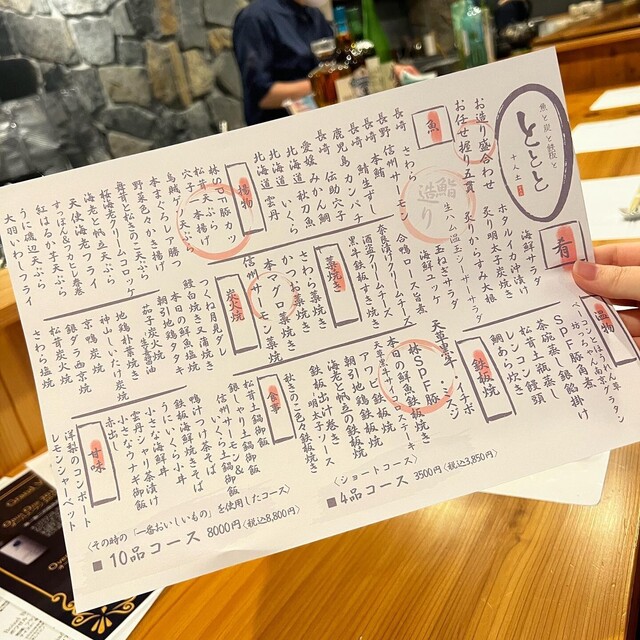 魚と炭と鉄板と
ととと
十八土
お造り盛合わせ
お任せ握り五貫
魚
さわら
長崎 鯖生ずし
長野 信州サーモン
鹿児島 カンパチ
長崎 伝助穴子
愛媛 みかん鯛
北海道 いくら
北海道 雲丹
鮨
造り
肴
海鮮サラダ
ホタルイカ沖漬け
炙り明太子
炙りからすみ大根
生ハム温玉シーザーサラダ
玉ねぎサラダ
海鮮ユッケ
合鴨ロース旨煮
奈良漬けクリームチーズ
酒盗クリームチーズ
黒牛鉄板すき焼き
揚物
林SPF豚カツ
松茸天ぷら
穴子一本揚げ
烏賊ゲソ天ぷら
本まぐろレア勝つ
野菜色々かき揚げ
丹波しめじ天ぷら
桜海老クリームコロッケ
海老と帆立天ぷら
天使海老フライ
紅はるか芋天ぷら
うに磯辺天ぷら
大羽いわしフライ
藁焼き
かつお藁焼き
さわら藁焼き
本マグロ藁焼き
信州サーモン藁焼き
炭火焼
つくね月見ダレ
鰻白焼き又蒲焼き
本日の鮮魚塩焼
朝引地鶏タタキ
茄子炭焼 生姜醤油
地鶏朴葉焼き
神山しいたけ炭焼
京鴨炭焼
銀ダラ西京焼
松茸炭火焼
さわら塩焼
温物
林SPF豚角煮
茶碗蒸し 銀餡掛け
松茸土瓶蒸し
レンコン饅頭
鯛あら炊き
鉄板焼
林SPF豚
本日の鮮魚
アワビ鉄板焼
朝引地鶏鉄板焼
海老と帆立の鉄板焼
鉄板出汁巻き
秋きのこ色々鉄板焼き
食事
松茸土鍋御飯
銀しゃり土鍋御飯
信州サーモン&
いくら土鍋御飯
鴨汁つけ茶そば
うにいくら小丼
鉄板海鮮焼きそば
小さな海鮮丼
雲丹シャリ茶漬け
小さなウナギ御飯
赤出し
甘味
洋梨のコンポート
レモンシャーベット
〈ショートコース〉
■4品コース 3500円(税込3,850円)
〈その時の「一番おいしいもの」を使用したコース〉
■10品コース 8000円(税込8,800円)